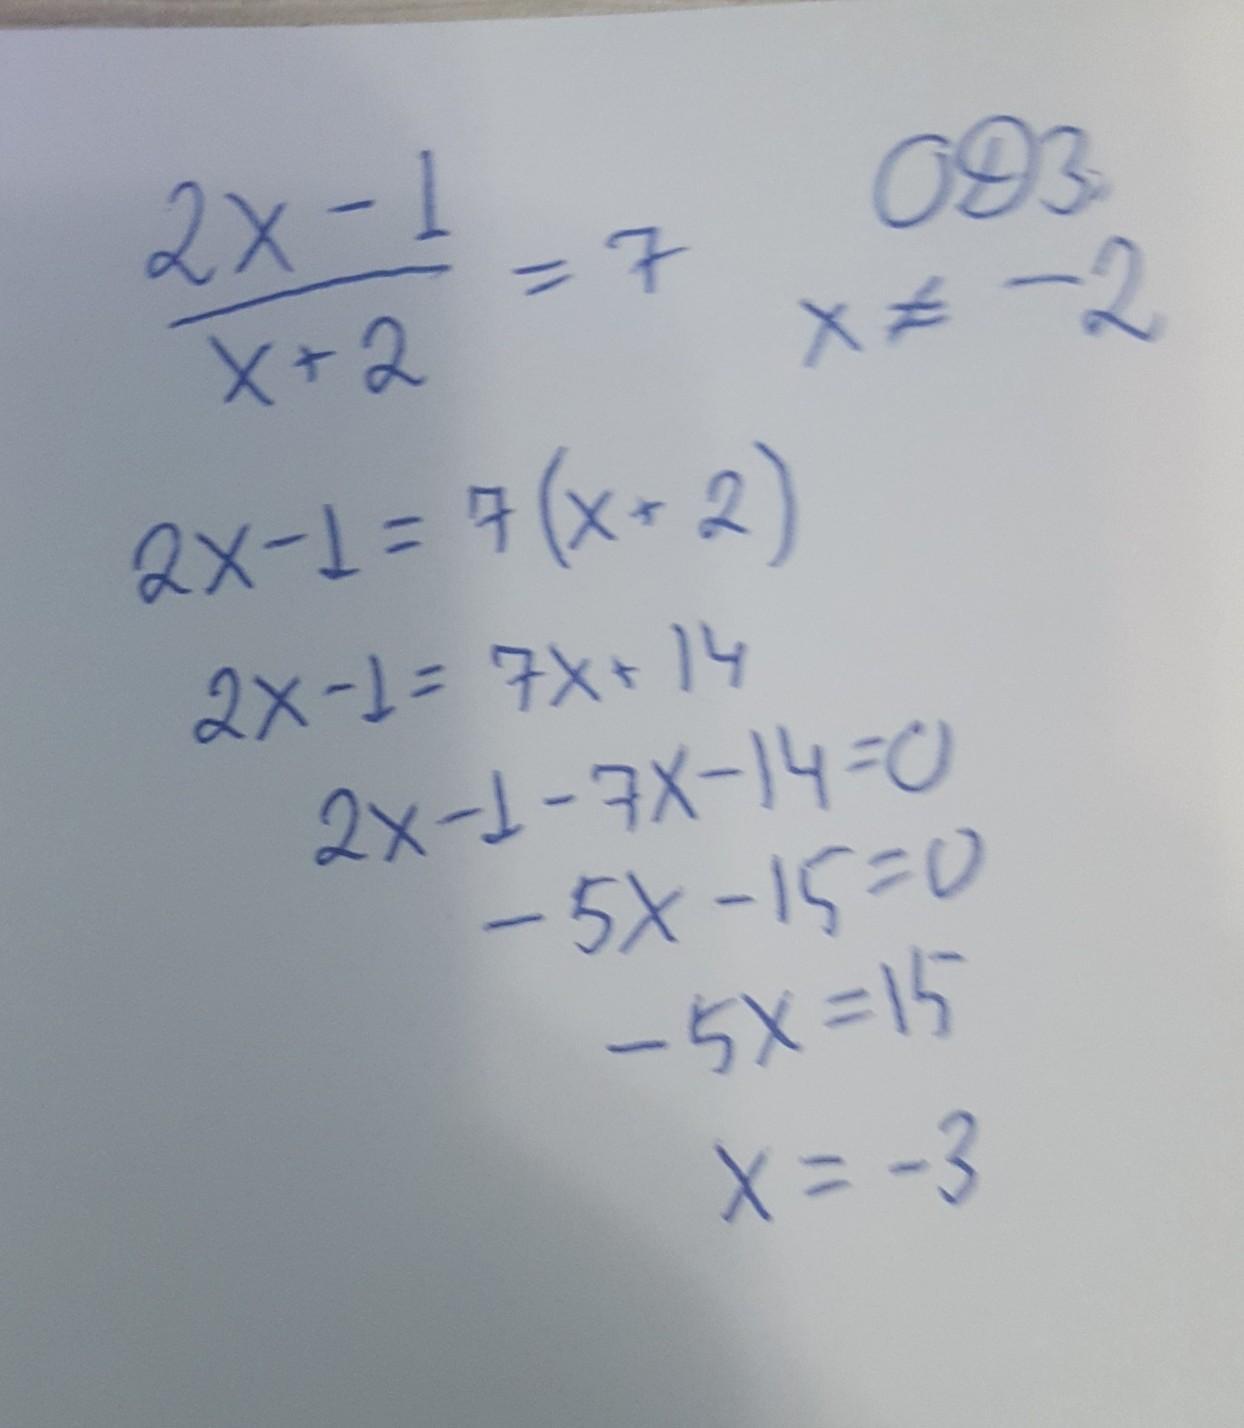 (2x - 1)/(x + 2) = 7
ОДЗ
x ≠ -2
2x - 1 = 7(x + 2)
2x - 1 = 7x + 14
2x - 1 - 7x - 14 = 0
- 5x - 15 = 0
- 5x = 15
x = -3